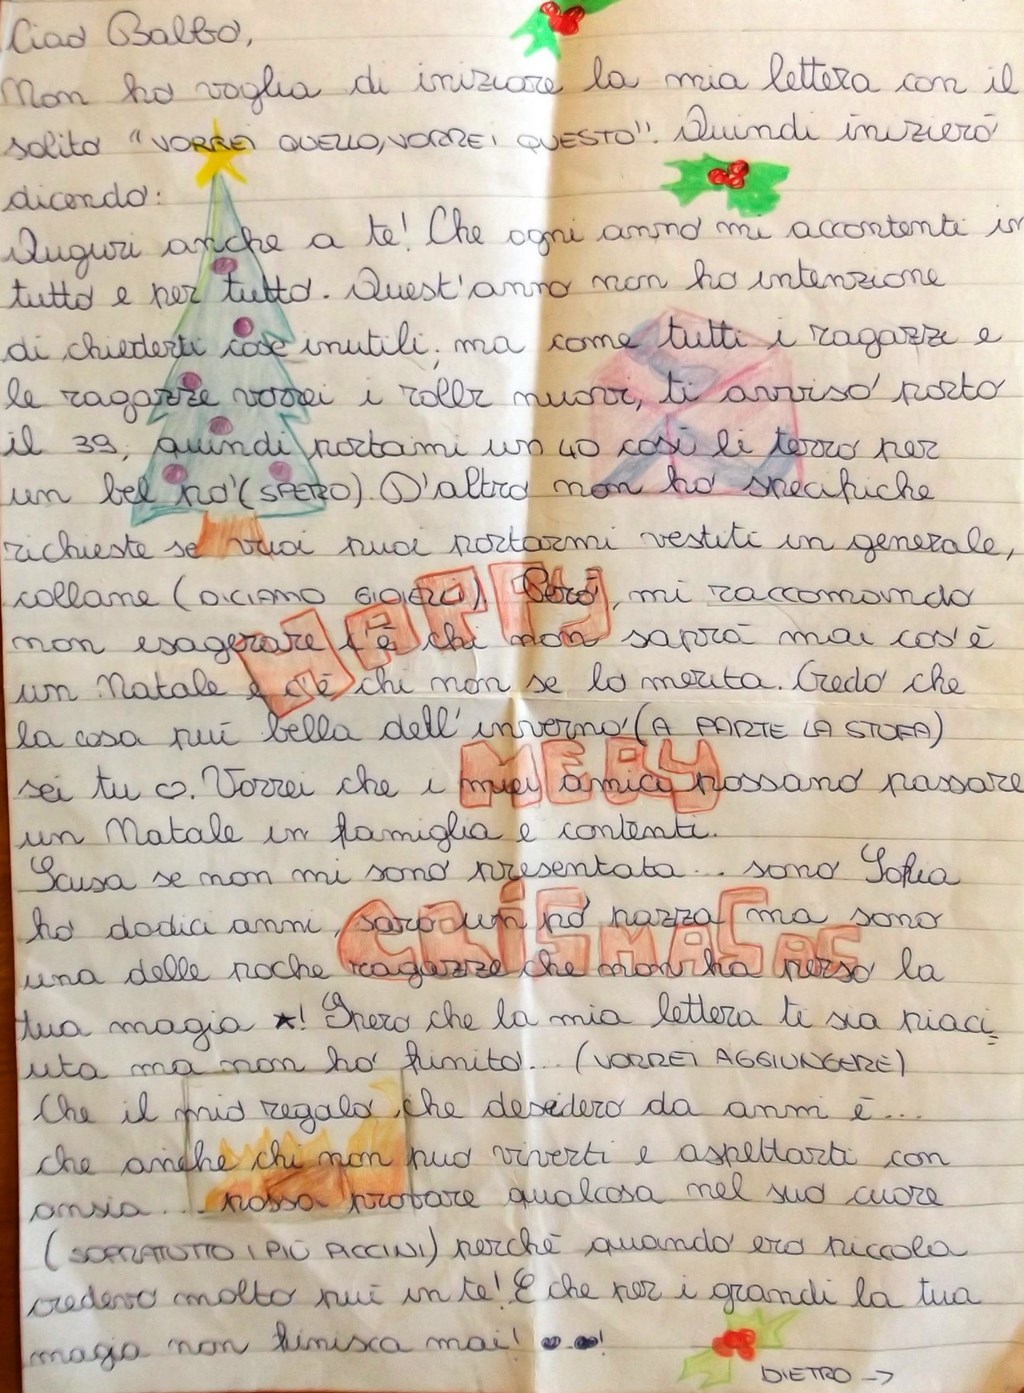 Ciao Balbo,
Non ho voglia di iniziare la mia lettera con il
solito "VORREI QUELLO, VORREI QUESTO". Quindi inizierò
dicendo:
Auguri anche a te! Che ogni anno mi accontenti in
tutto e per tutto. Quest'anno non ho intenzione
di chiederti cose inutili; ma come tutti i ragazzi e
le ragazze vorrei i rollr nuovi, ti avviso porto
il 39, quindi portami un 40 così li terrò per
un bel pò (SPERO). D'altro non ho specifiche
richieste se vuoi puoi portarmi vestiti in generale,
collane (DICIAMO GIOIELLI). Però, mi raccomando
non esagerare c'è chi non saprà mai cos'è
un Natale e c'è chi non se lo merita. Credo che
la cosa puì bella dell'inverno (A PARTE LA STUFA)
sei tu ♡. Vorrei che i miei amici possano passare
un Natale in famiglia e contenti.
Scusa se non mi sono presentata... sono Sofia
ho dodici anni, sarò un pò pazza ma sono
una delle poche ragazze che non ha perso la
tua magia ★! Spero che la mia lettera ti sia piaci
uta ma non ho finito... (VORREI AGGIUNGERE)
Che il mio regalo che desidero da anni è...
che anche chi non può viverti e aspettarti con
ansia... possa provare qualcosa nel suo cuore
(SOPRATUTTO I PIÙ PICCINI) perchè quando ero piccola
credevo molto puì in te! E che per i grandi la tua
magia non finisca mai!
DIETRO →
HAPPY
MERY
CRISMAS